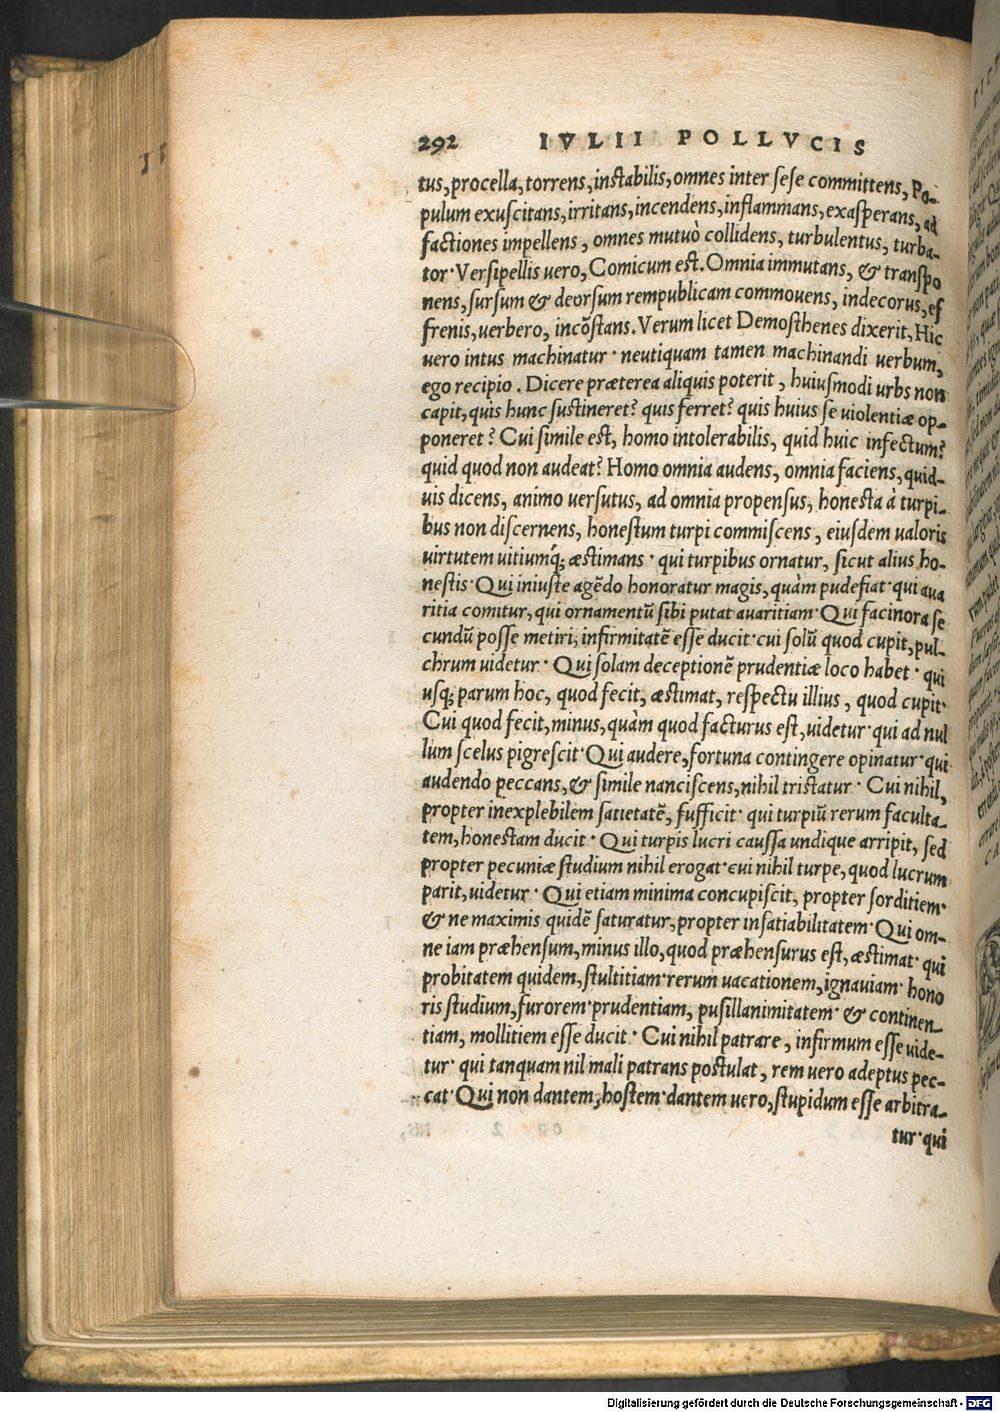 292 IVLII POLLVCIS
tus, procella, torrens, instabilis, omnes inter sese committens, Po-
pulum exuscitans, irritans, incendens, inflammans, exasperans, ad
factiones impellens, omnes mutuò collidens, turbulentus, turba-
tor· Versipellis uero, Comicum est. Omnia immutans, & transpo
nens, sursum & deorsum rempublicam commouens, indecorus, ef
frenis, uerbero, incōstans. Verum licet Demosthenes dixerit, Hic
uero intus machinatur· neutiquam tamen machinandi uerbum,
ego recipio. Dicere præterea aliquis poterit, huiusmodi urbs non
capit, quis hunc sustineret? quis ferret? quis huius se uiolentiæ op-
poneret? Cui simile est, homo intolerabilis, quid huic infectum?
quid quod non audeat? Homo omnia audens, omnia faciens, quid-
uis dicens, animo uersutus, ad omnia propensus, honesta à turpi-
bus non discernens, honestum turpi commiscens, eiusdem ualoris
uirtutem uitiumq́; æstimans· qui turpibus ornatur, sicut alius ho-
nestis· Qui iniuste agēdo honoratur magis, quàm pudefiat· qui aua
ritia comitur, qui ornamentū sibi putat auaritiam· Qui facinora se
cundū posse metiri, infirmitatē esse ducit· cui solū quod cupit, pul-
chrum uidetur· Qui solam deceptionē prudentiæ loco habet· qui
usq; parum hoc, quod fecit, æstimat, respectu illius, quod cupit·
Cui quod fecit, minus, quàm quod facturus est, uidetur· qui ad nul
lum scelus pigrescit· Qui audere, fortuna contingere opinatur· qui
audendo peccans, & simile nanciscens, nihil tristatur· Cui nihil,
propter inexplebilem satietatē, sufficit· qui turpiū rerum faculta-
tem, honestam ducit· Qui turpis lucri caussa undique arripit, sed
propter pecuniæ studium nihil erogat· cui nihil turpe, quod lucrum
parit, uidetur· Qui etiam minima concupiscit, propter sorditiem·
& ne maximis quidē saturatur, propter insatiabilitatem· Qui om-
ne iam præhensum, minus illo, quod præhensurus est, æstimat· qui
probitatem quidem, stultitiam· rerum uacationem, ignauiam· hono
ris studium, furorem· prudentiam, pusillanimitatem· & continen-
tiam, mollitiem esse ducit· Cui nihil patrare, infirmum esse uide-
tur· qui tanquam nil mali patrans postulat, rem uero adeptus pec-
cat· Qui non dantem, hostem· dantem uero, stupidum esse arbitra-
tur· qui
Digitalisierung gefördert durch die Deutsche Forschungsgemeinschaft - DFG